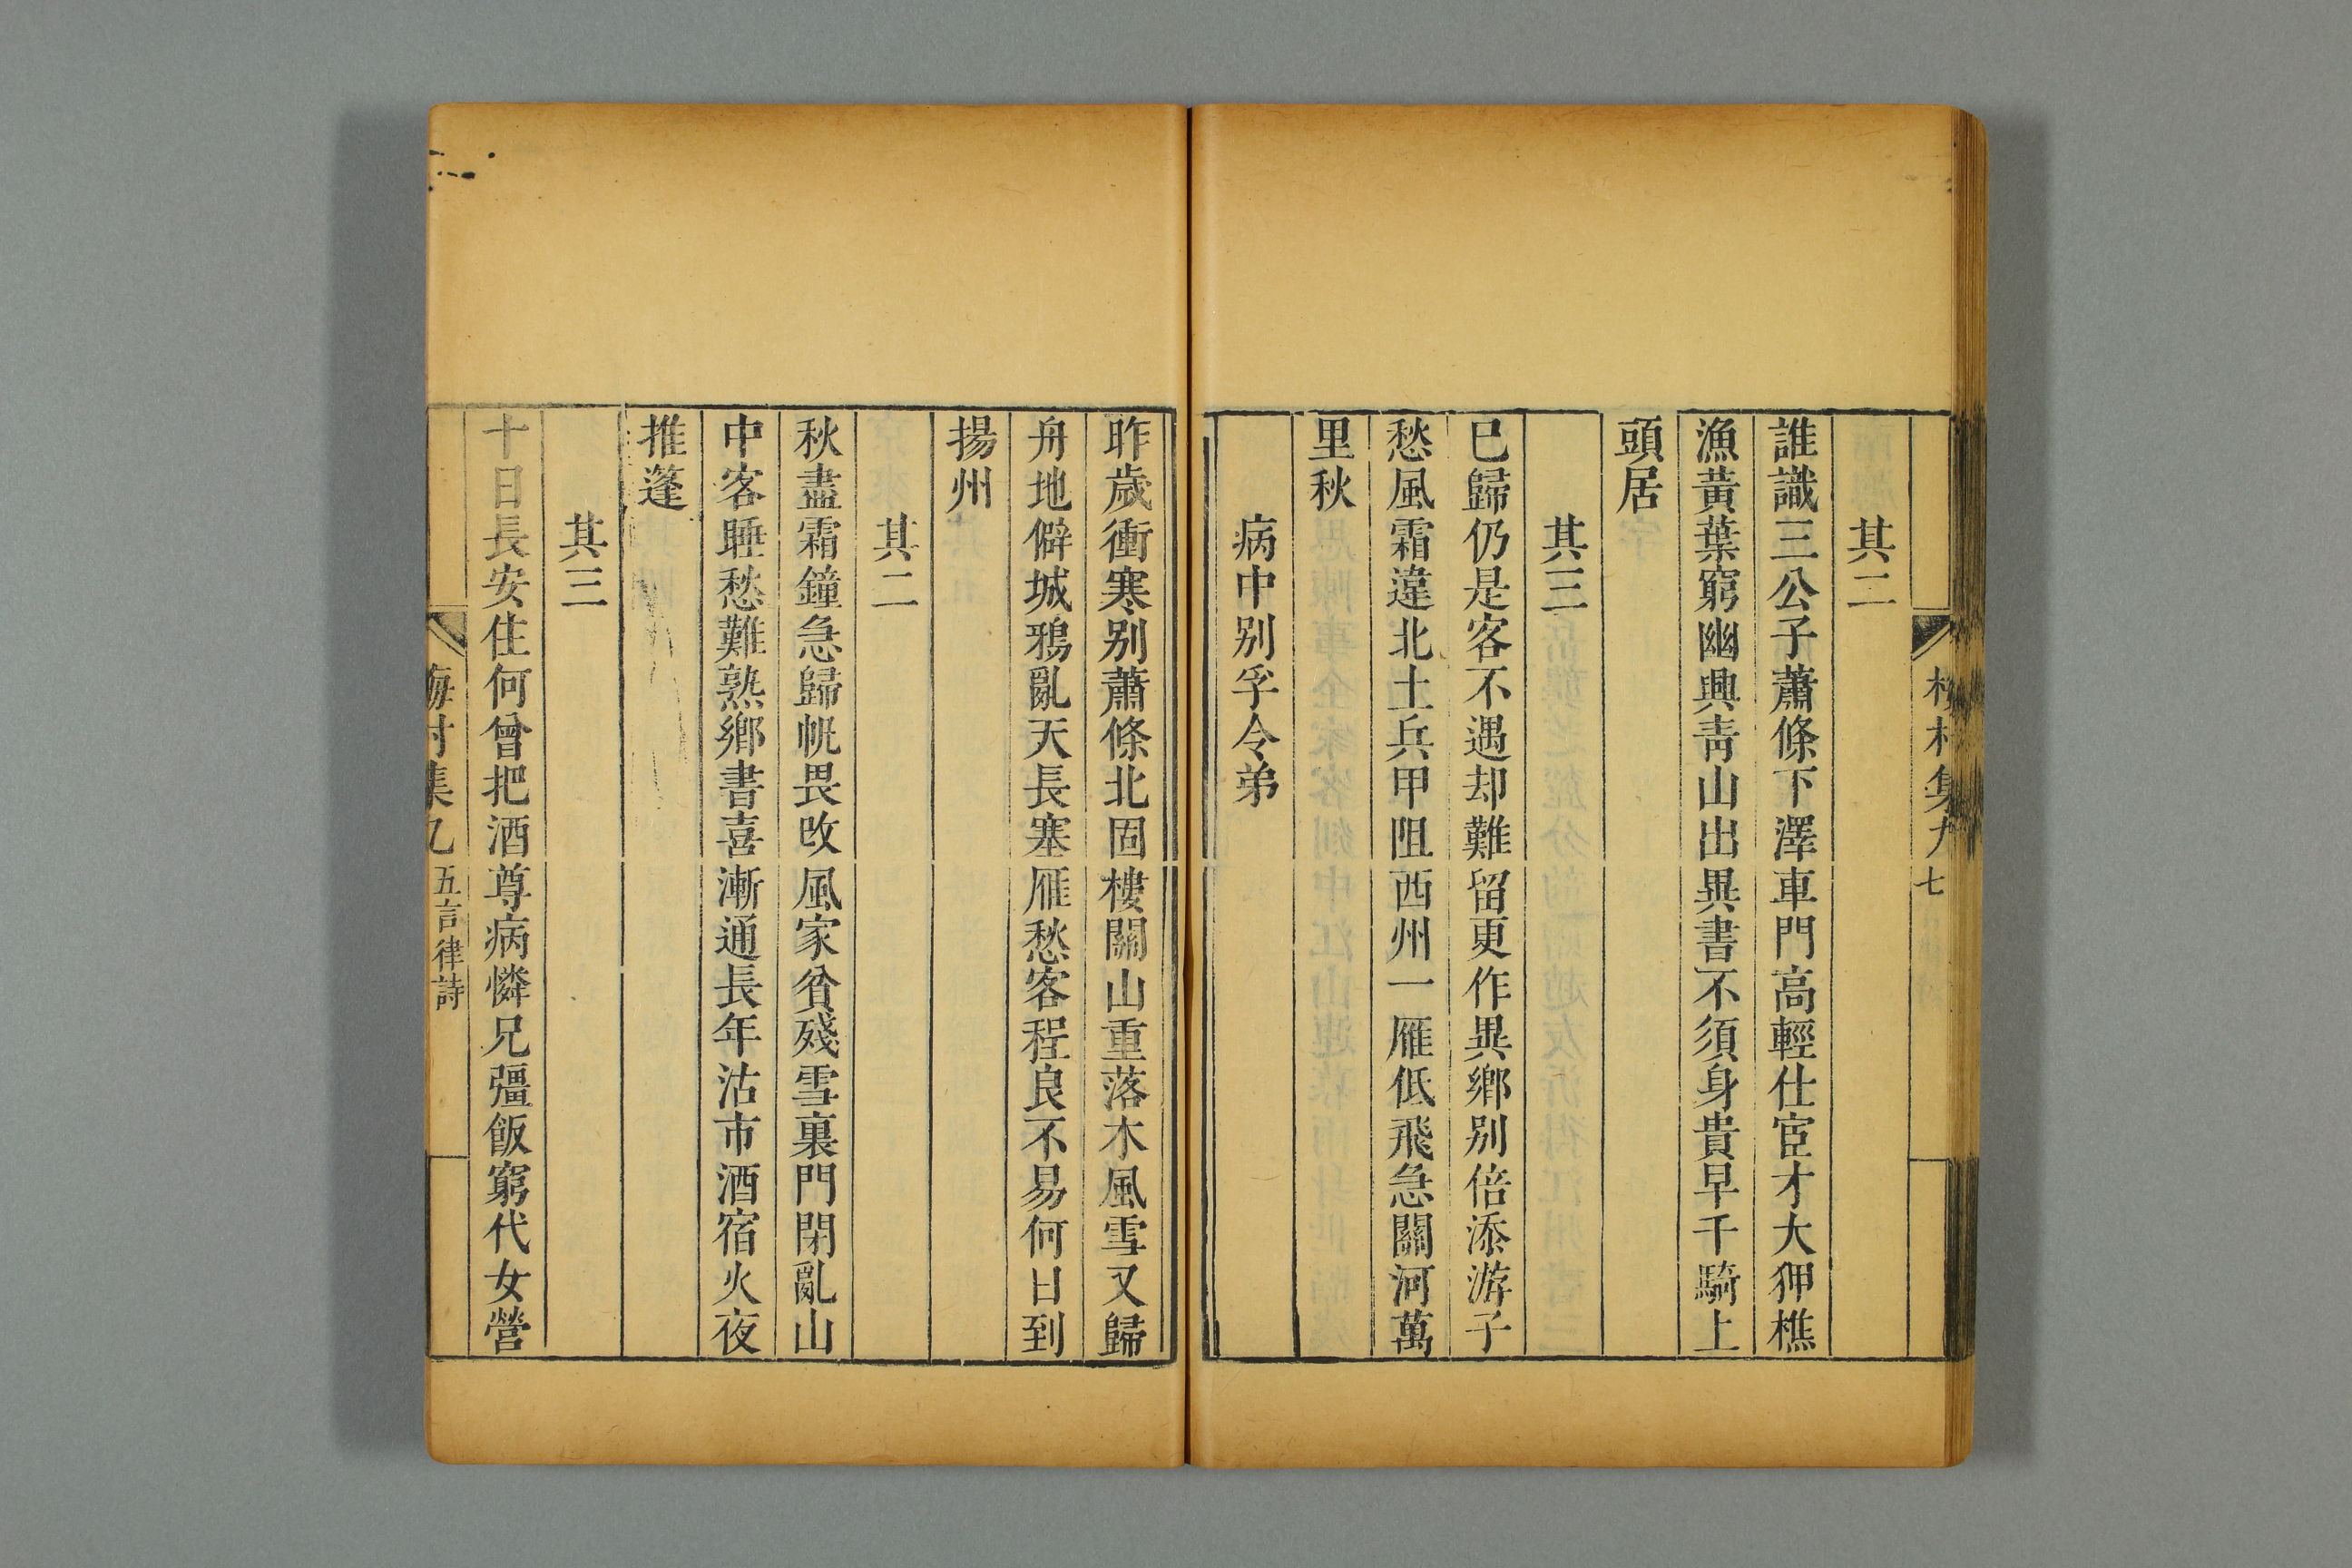 其二
誰識三公子蕭條下澤車門高輕仕宦才大狎樵
漁黃葉窮幽興靑山出異書不須身貴早千騎上
頭居
其三
已歸仍是客不遇却難留更作異鄉別倍添游子
愁風霜違北土兵甲阻西州一雁低飛急關河萬
里秋
病中別孚令弟
昨歲衝寒別蕭條北固樓關山重落木風雪又歸
舟地僻城鴉亂天長塞雁愁客程良不易何日到
揚州
其二
秋盡霜鐘急歸帆畏改風家貧殘雪裏門閉亂山
中客睡愁難熟鄉書喜漸通長年沽市酒宿火夜
推蓬
其三
十日長安住何曾把酒尊病憐兄彊飯窮代女營
梅村集九 五言律詩
七